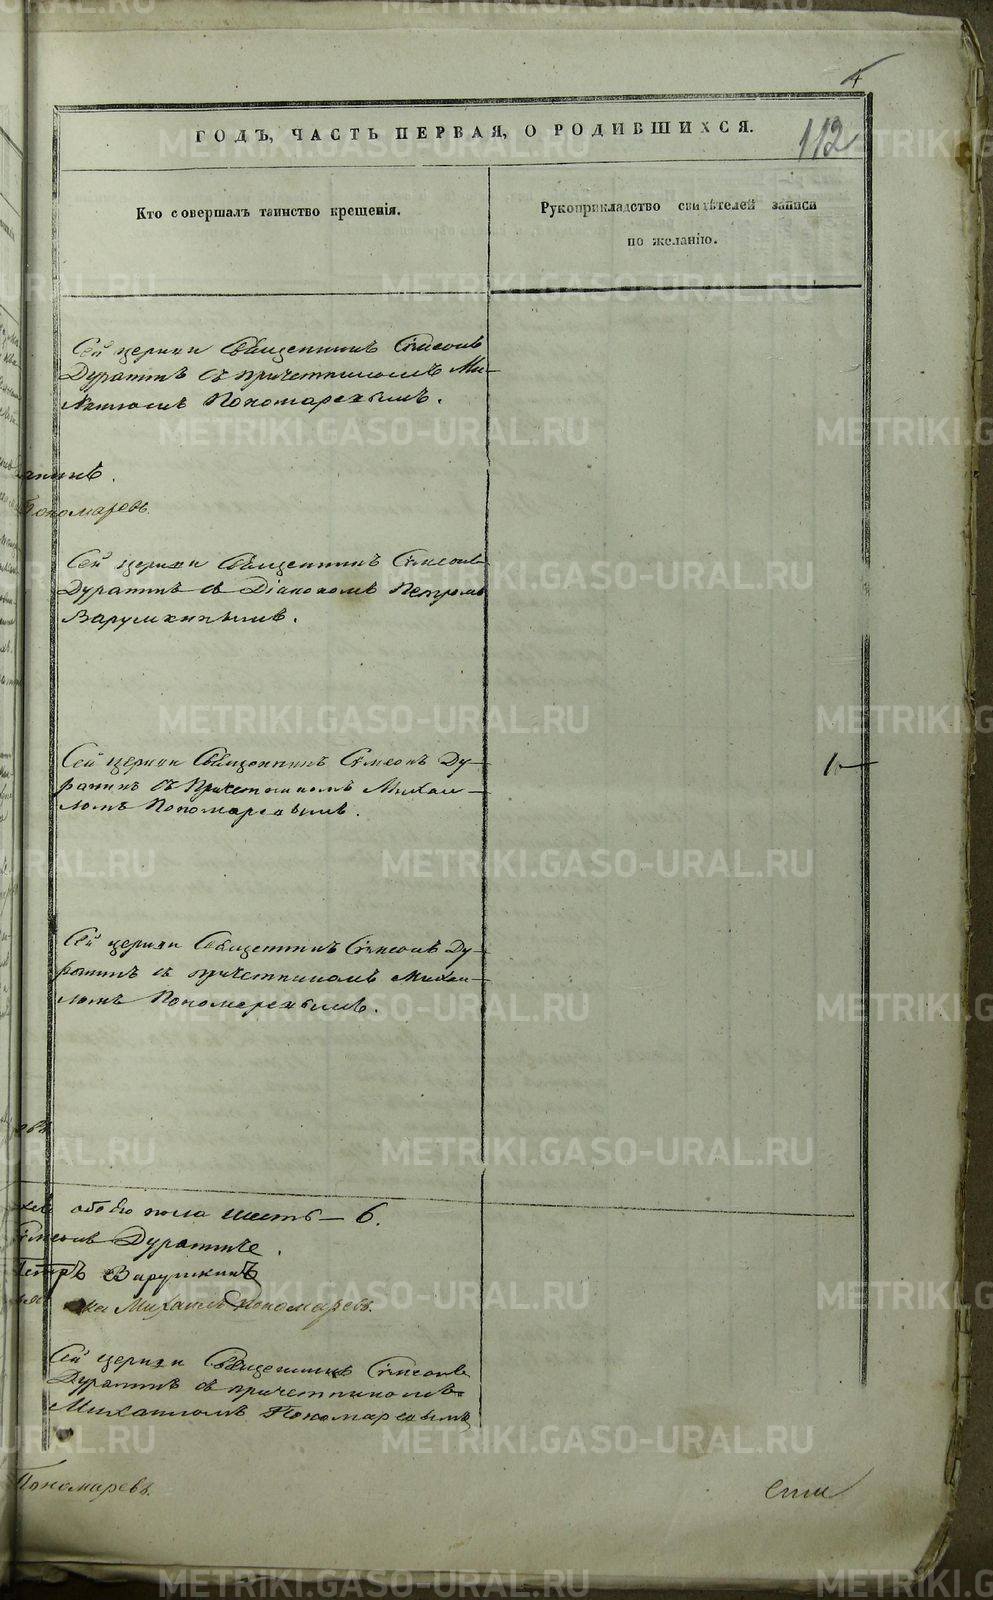 4
ГОДЪ, ЧАСТЬ ПЕРВАЯ, О РОДИВШИХСЯ.
112
Кто совершалъ таинство крещенія.
Рукоприкладство свидѣтелей записи
по желанію.
Сей церкви Священникъ Симеонъ
Дурагинъ съ причетникомъ Ми-
хаиломъ Пономаревымъ.
Пономаревъ
Сей церкви Священникъ Симеонъ
Дурагинъ съ Діакономъ Петромъ
Варушкинымъ.
Сей церкви Священникъ Симеонъ Ду-
рагинъ съ Причетникомъ Михаи-
ломъ Пономаревымъ.
Сей церкви Священникъ Симеонъ Ду-
рагинъ съ причетникомъ Михаи-
ломъ Пономаревымъ.
обоего пола шесть - 6.
Симеонъ Дурагинъ.
Петръ Варушкинъ
Михаилъ Пономаревъ.
Сей церкви Священникъ Симеонъ
Дурагинъ съ причетникомъ
Михаиломъ Пономаревымъ
Пономаревъ.
METRIKI.GASO-URAL.RU